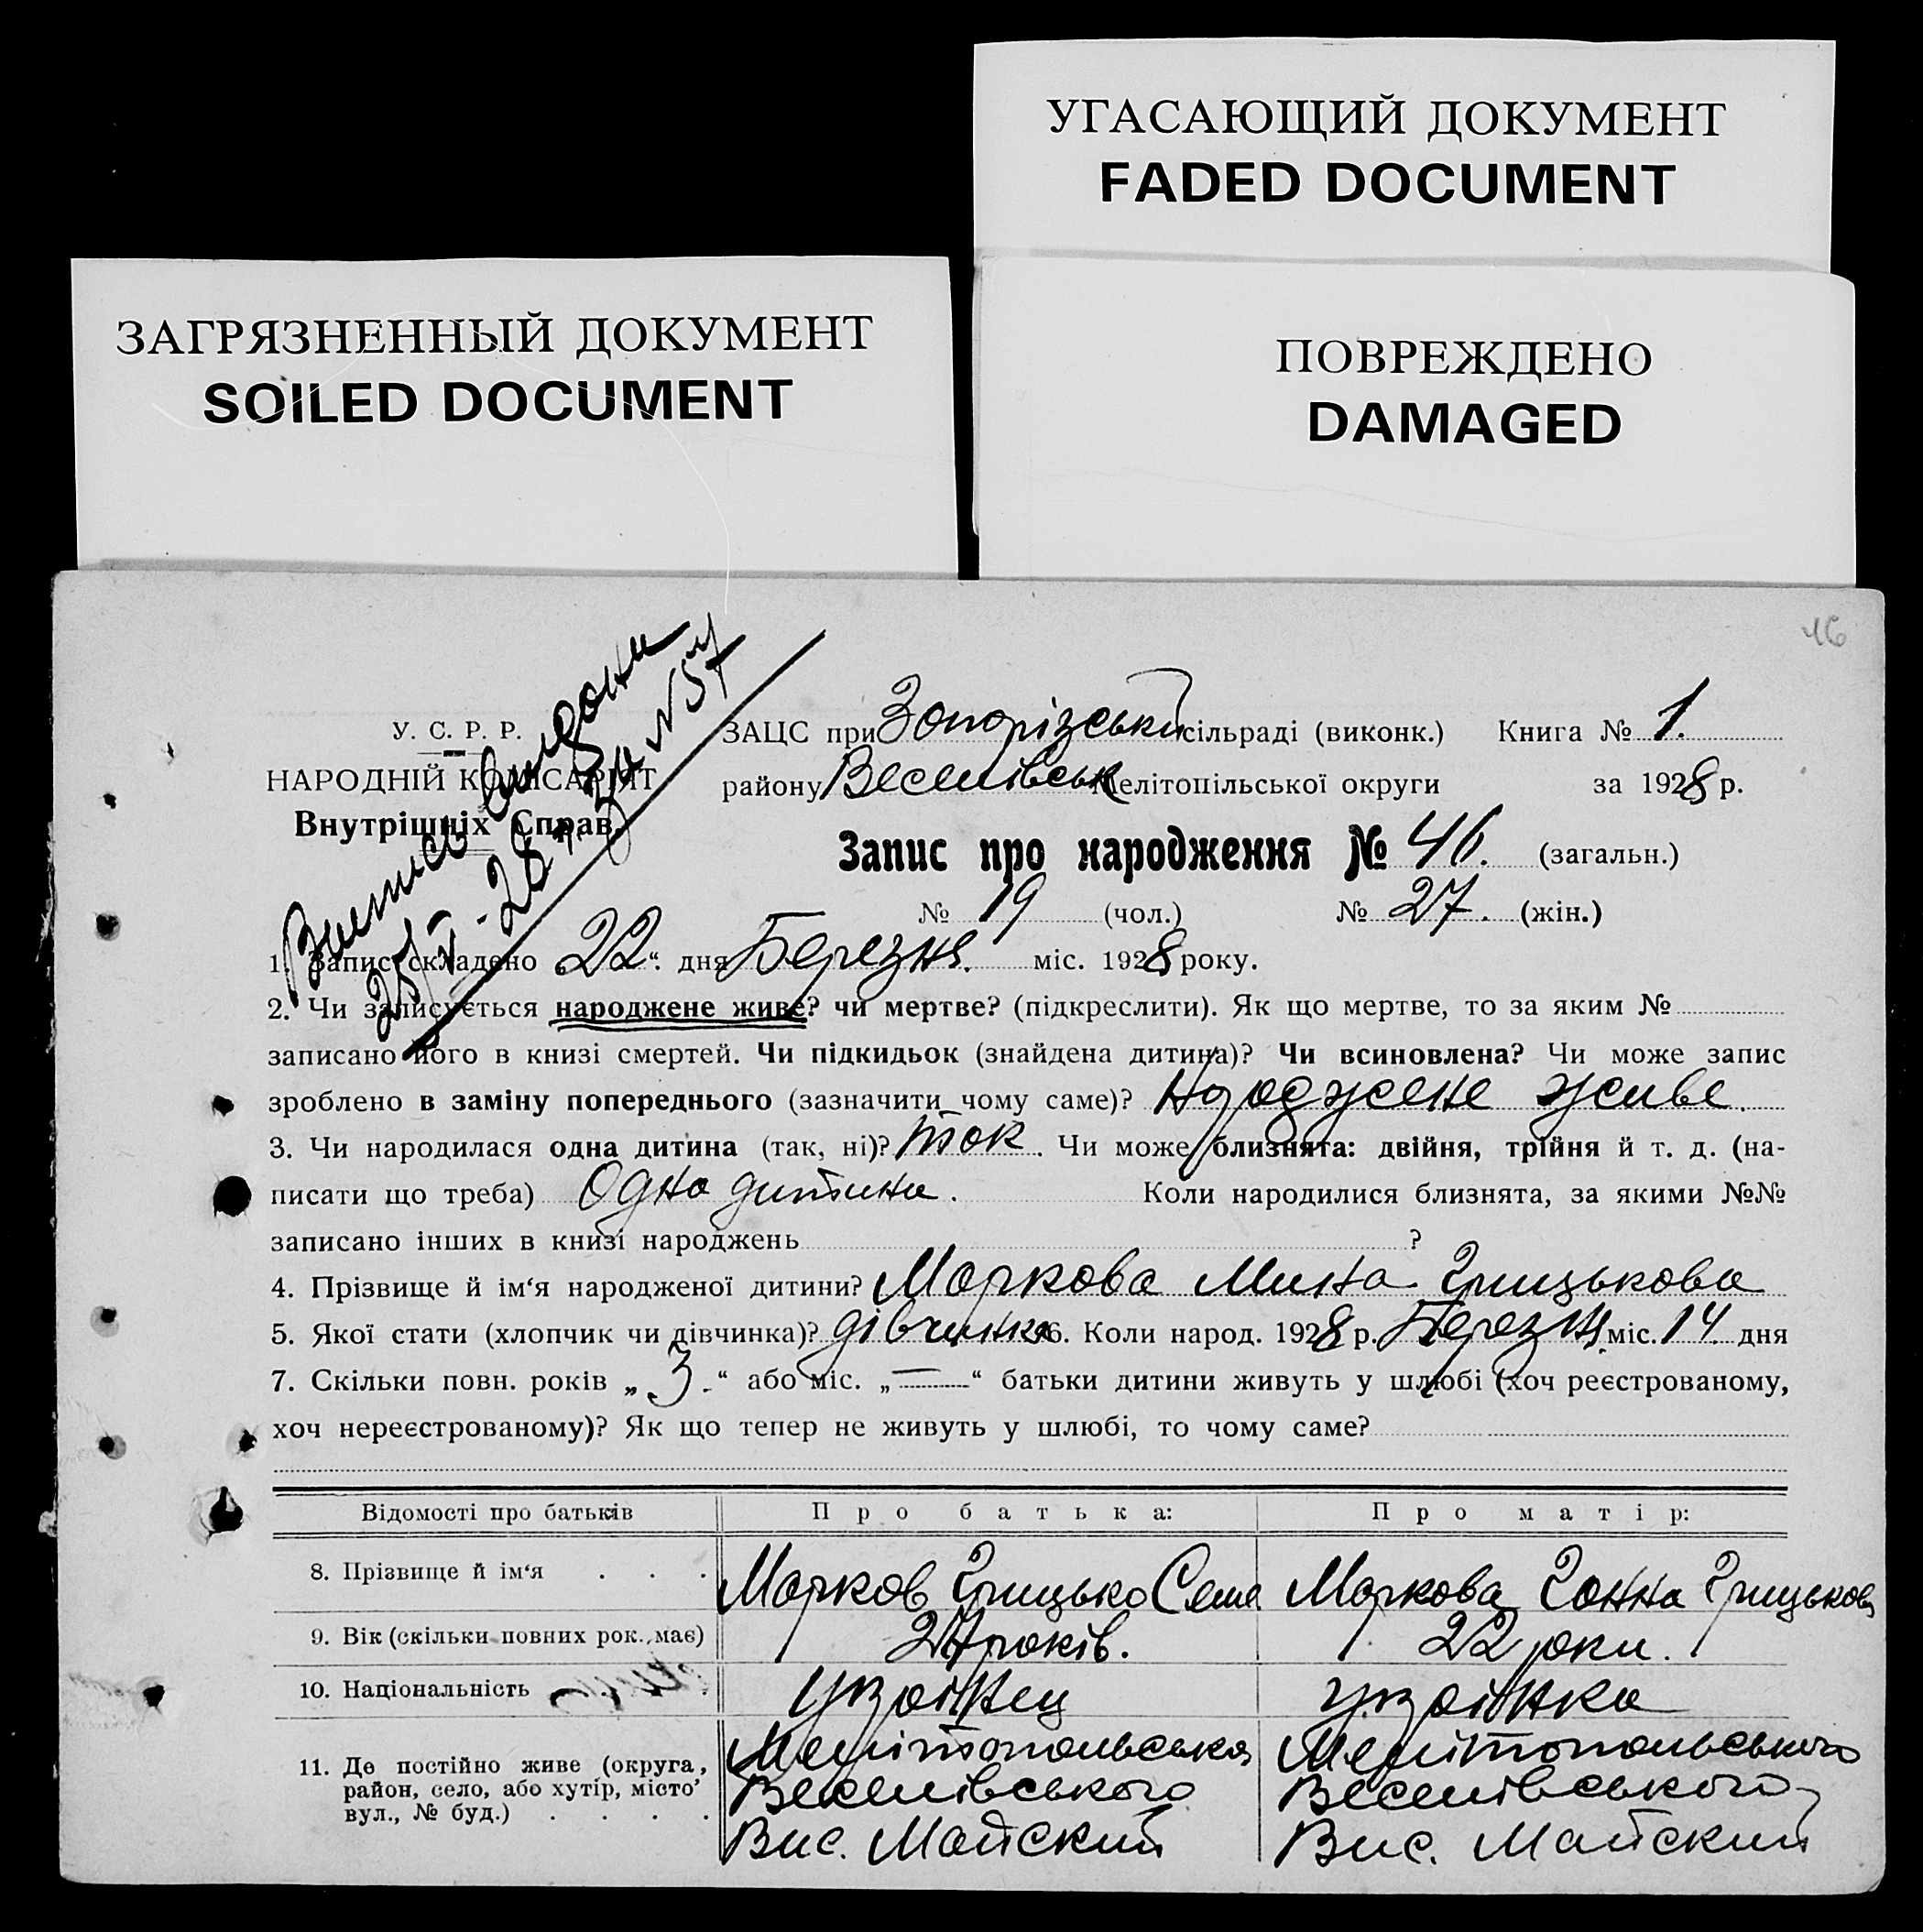 УГАСАЮЩИЙ ДОКУМЕНТ
FADED DOCUMENT
ЗАГРЯЗНЕННЫЙ ДОКУМЕНТ
SOILED DOCUMENT
ПОВРЕЖДЕНО
DAMAGED
46
У. С. Р. Р.
НАРОДНІЙ КОМІСАРІЯТ
Внутрішніх Справ.
Выпись выдана
ЗАЦС при Запорізській сільраді (виконк.) Книга № 1.
району Веселівськ Мелітопільської округи за 1928 р.
Запис про народження № 46. (загальн.)
№ 19 (чол.) № 27. (жін.)
1. Запис складено 22 “. дня Березня. міс. 1928 року.
2. Чи записується народжене живе? чи мертве? (підкреслити). Як що мертве, то за яким №
записано його в книзі смертей. Чи підкидьок (знайдена дитина)? Чи всиновлена? Чи може запис
зроблено в заміну попереднього (зазначити чому саме)? Народжене живе.
3. Чи народилася одна дитина (так, ні)? так. Чи може близнята: двійня, трійня й т. д. (на-
писати що треба) Одна дитина. Коли народилися близнята, за якими №№
записано інших в книзі народжень ?
4. Прізвище й ім‘я народженої дитини? Маркова Мина Грицькова
5. Якої стати (хлопчик чи дівчинка)? дівчинка 6. Коли народ. 1928 р. Березня міс. 14. дня
7. Скільки повн. років „ 3. “ або міс. „ — “ батьки дитини живуть у шлюбі (хоч реєстрованому,
хоч нереєстрованому)? Як що тепер не живуть у шлюбі, то чому саме?
Відомості про батьків Про батька: Про матір:
8. Прізвище й ім‘я . . . Марков Грицько Семе Маркова Ганна Грицькова
9. Вік (скільки повних рок. має) років. 22 роки.
10. Національність . українец українка
11. Де постійно живе (округа, Мелітопольська Мелітопольського
район, село, або хутір, місто’ Веселівського Веселівського
вул., № буд.) . . . . Вис. Майский Вис. Майский